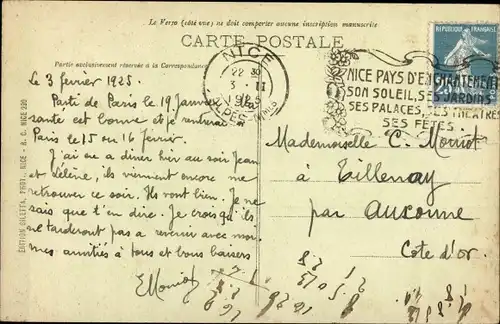 Le Verso (côté vue) ne doit comporter aucune inscription manuscrite
CARTE POSTALE
Partie exclusivement réservée à la Correspondance
NICE
22 30
3 II
1925
REPUBLIQUE FRANÇAISE
25
NICE PAYS D'ENCHANTEMENT
SON SOLEIL, SES JARDINS
SES PALACES, SES THEATRES
SES FÊTES.
EDITION GILETTA, PHOT., NICE
Le 3 février 1925.
Parti de Paris le 19 Janvier
santé est bonne et je rentrerai
Paris le 15 ou 16 février.
J'ai eu à dîner hier au soir Jean
et Hélène, ils viennent encore me
retrouver ce soir. Ils vont bien. Je ne
sais que t'en dire. Je crois qu'ils
ne tarderont pas à revenir avec moi.
mes amitiés à tous et bons baisers
EMoniot
Mademoiselle C. Moniot
à Tillenay
par Auxonne
Côte d'or.